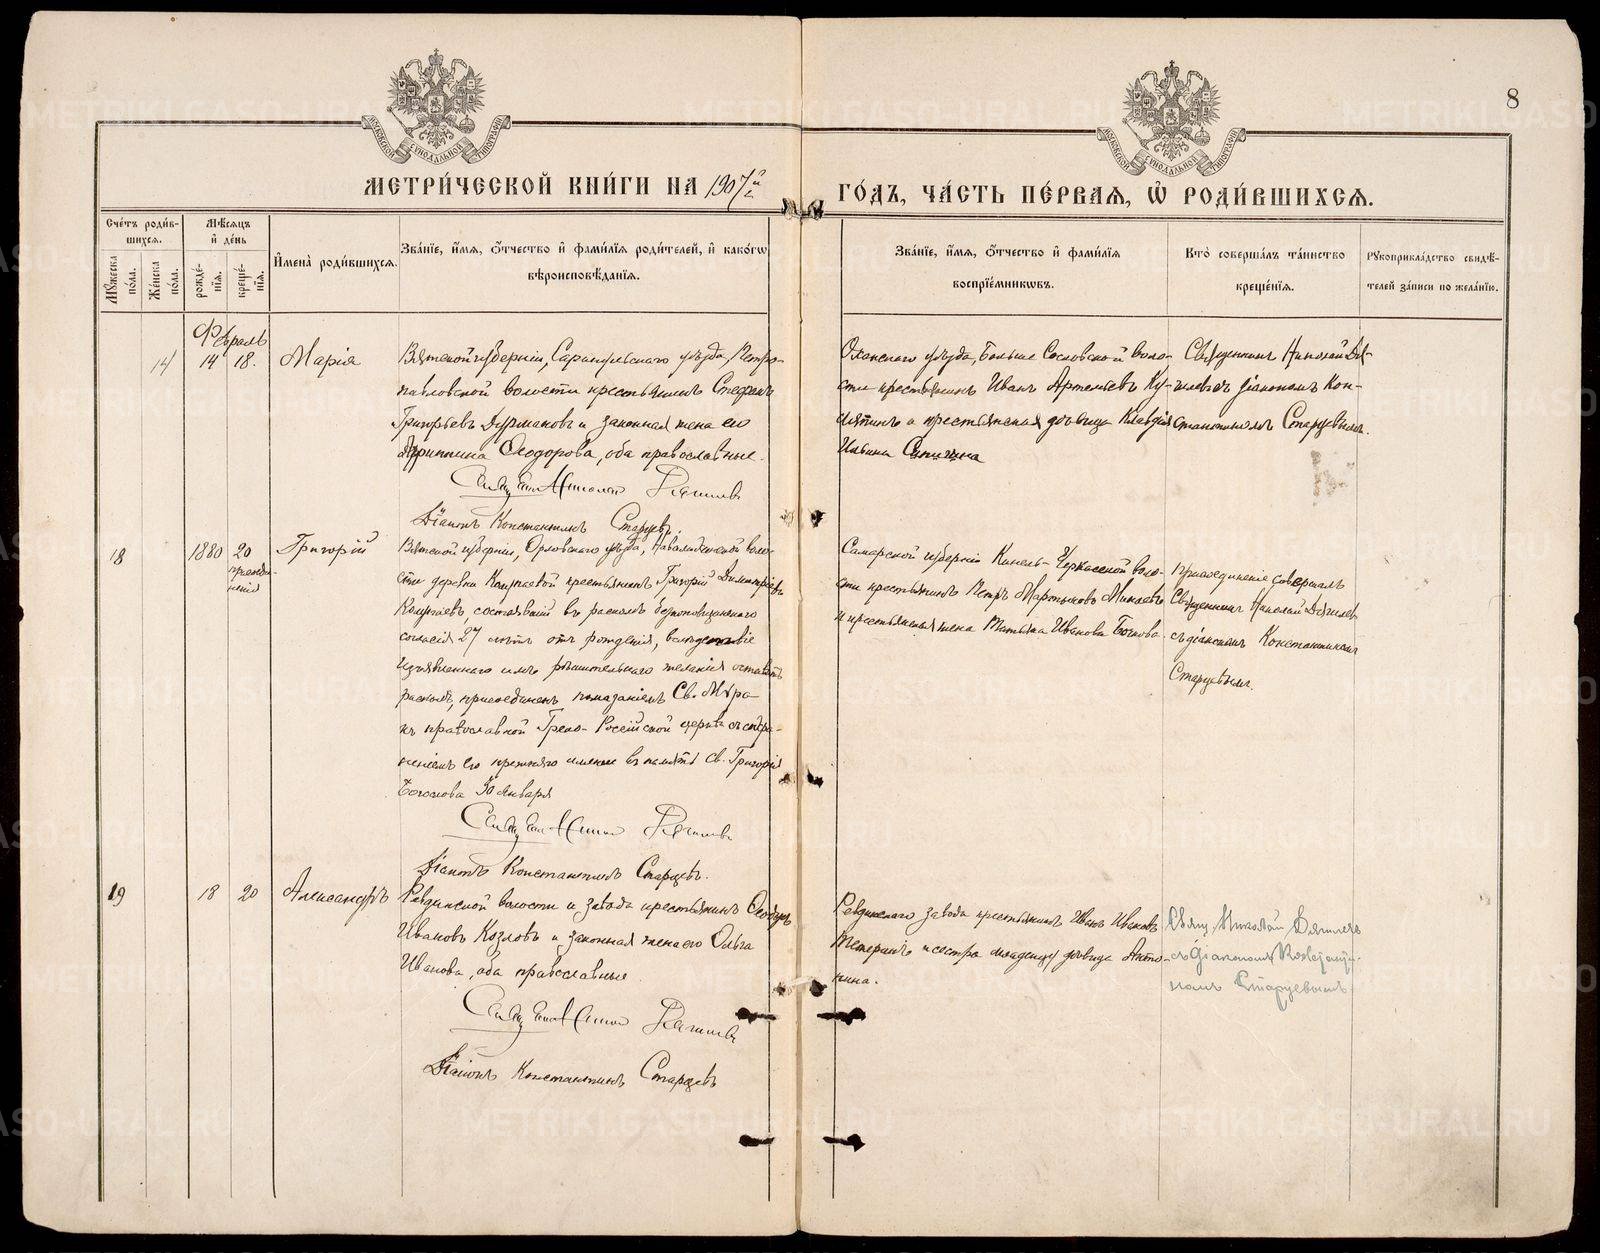 МОСКОВСКОЙ СѴНОДАЛЬНОЙ ТИПОГРАФІИ
МОСКОВСКОЙ СѴНОДАЛЬНОЙ ТИПОГРАФІИ
8
МЕТРИ́ЧЕСКОЙ КНИ́ГИ НА 1907й
ГО́ДЪ, ЧА́СТЬ ПЕ́РВАЯ, Ѡ РОДИ́ВШИХСЯ.
Сче́тъ роди́в-
шихся.
Мужеска по́ла.
Же́нска по́ла.
Мѣ́сяцъ
и҆ де́нь
рожде́-
нїѧ.
креще́-
нїѧ.
И҆мена̀ роди́вшихся.
Зва́нїе, и҆́мя, ѻ҆́тчество и҆ фами́лїя роди́телей, и҆ како́гѡ
вѣроисповѣ́данїя.
Зва́нїе, и҆́мя, ѻ҆́тчество и҆ фами́лїя
воспрїе́мникѡвъ.
Кто̀ соверша́лъ та́инство
креще́нїя.
Рꙋкоприкла́дство свидѣ́-
телей за́писи по жела́нїю.
Февраль
14 14 18. Марія
Вятской губерніи, Сарапульскаго уѣзда, Петро-
павловской волости крестьянинъ Стефанъ
Григорьевъ Дурмановъ и законная жена его
Агриппина Ѳеодорова, оба православные.
Священ. Николай Дягилевъ
Діаконъ Константинъ Старцевъ.
Оханскаго уѣзда, Больше Сосновской воло-
сти крестьянинъ Иванъ Артемьевъ Ку-
и крестьянская дѣвица Клавдія
Ильина
Священникъ Николай Дя-
гилевъ съ діакономъ Кон-
стантиномъ Старцевымъ.
18 1880 20 Григорій
присоеди-
ненія
Вятской губерніи, Орловскаго уѣзда, воло-
сти деревни крестьянинъ Григорій Димитріевъ
состоявшій въ расколѣ безпоповщинскаго
согласія 27 лѣтъ отъ рожденія, вслѣдствіе
изъявленнаго имъ рѣшительнаго желанія оставить
расколъ, присоединенъ помазаніемъ Св. Мѵра
къ православной Греко-Россійской церкви съ сохра-
неніемъ его прежняго имени въ память св. Григорія
Богослова 30 Января
Священ. Николай Дягилевъ
Діаконъ Константинъ Старцевъ.
Самарской губерніи Кинель-Черкасской воло-
сти крестьянинъ Петръ Мартыновъ
и крестьянская жена Татьяна Иванова
Присоединеніе совершалъ
Священникъ Николай Дягилев
съ діакономъ Константином
Старцевымъ.
19 18 20 Александръ
Ревдинской волости и завода крестьянинъ Ѳеодоръ
Ивановъ Козловъ и законная жена его Ольга
Иванова, оба православные
Священ. Николай Дягилевъ
Діаконъ Константинъ Старцевъ
Ревдинскаго завода крестьянинъ Иванъ Ивановъ
и сестра младенцу дѣвица Анто-
нина.
Свящ. Николай Дягилевъ
съ діакономъ Константи-
номъ Старцевымъ
METRIKI.GASO-URAL.RU